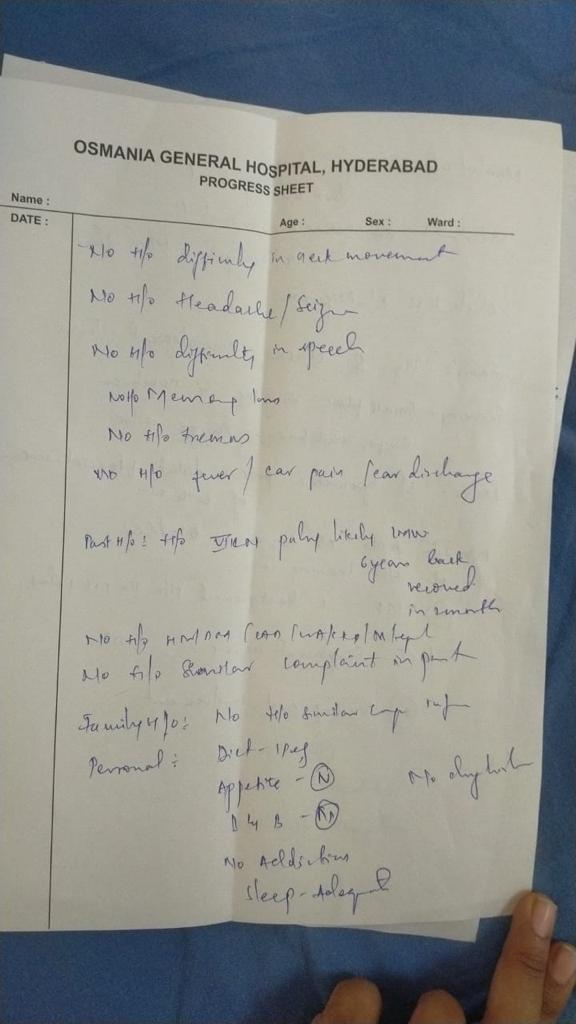 OSMANIA GENERAL HOSPITAL, HYDERABAD
PROGRESS SHEET
Name :
Age : Sex : Ward :
DATE :
No H/o difficulty in neck movement
No H/o Headache /
No H/o difficulty in speech
No H/o Memory loss
No H/o tremors
No H/o fever / ear pain / ear discharge
Past H/o : H/o palsy likely LMN
6 years back
in month
No H/o
No H/o Similar complaint in past
Family H/o : No H/o similar
Personal : Diet -
Appetite - N
B & B - N
No Addictions
Sleep - Adequate